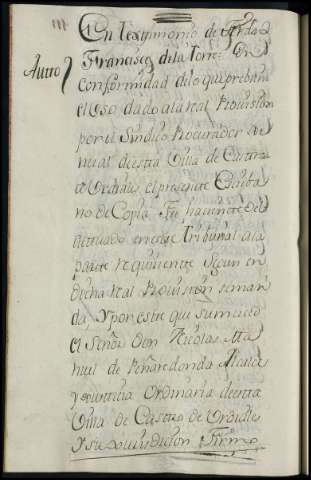 En testimonio de Verdad
Francisco de la Torre. En
Auto
conformidad de lo que preban
el Uso dado ala Real Provision
por el Sindico Procurador Ge
neral de esta Villa de Castro
de Ordiales el presente Escriba
no de Copia Feé haciente del
actuado en este Tribunal ala
parte requirente segun en
dicha Real Provision se man
da, Y por este que su merced
el Señor Don Nicolas Ma
nuel de Peñarredonda Alcalde
y Justicia Ordinaria de esta
Villa de Castro de Ordiales
Y su Jurisdicion Firmo